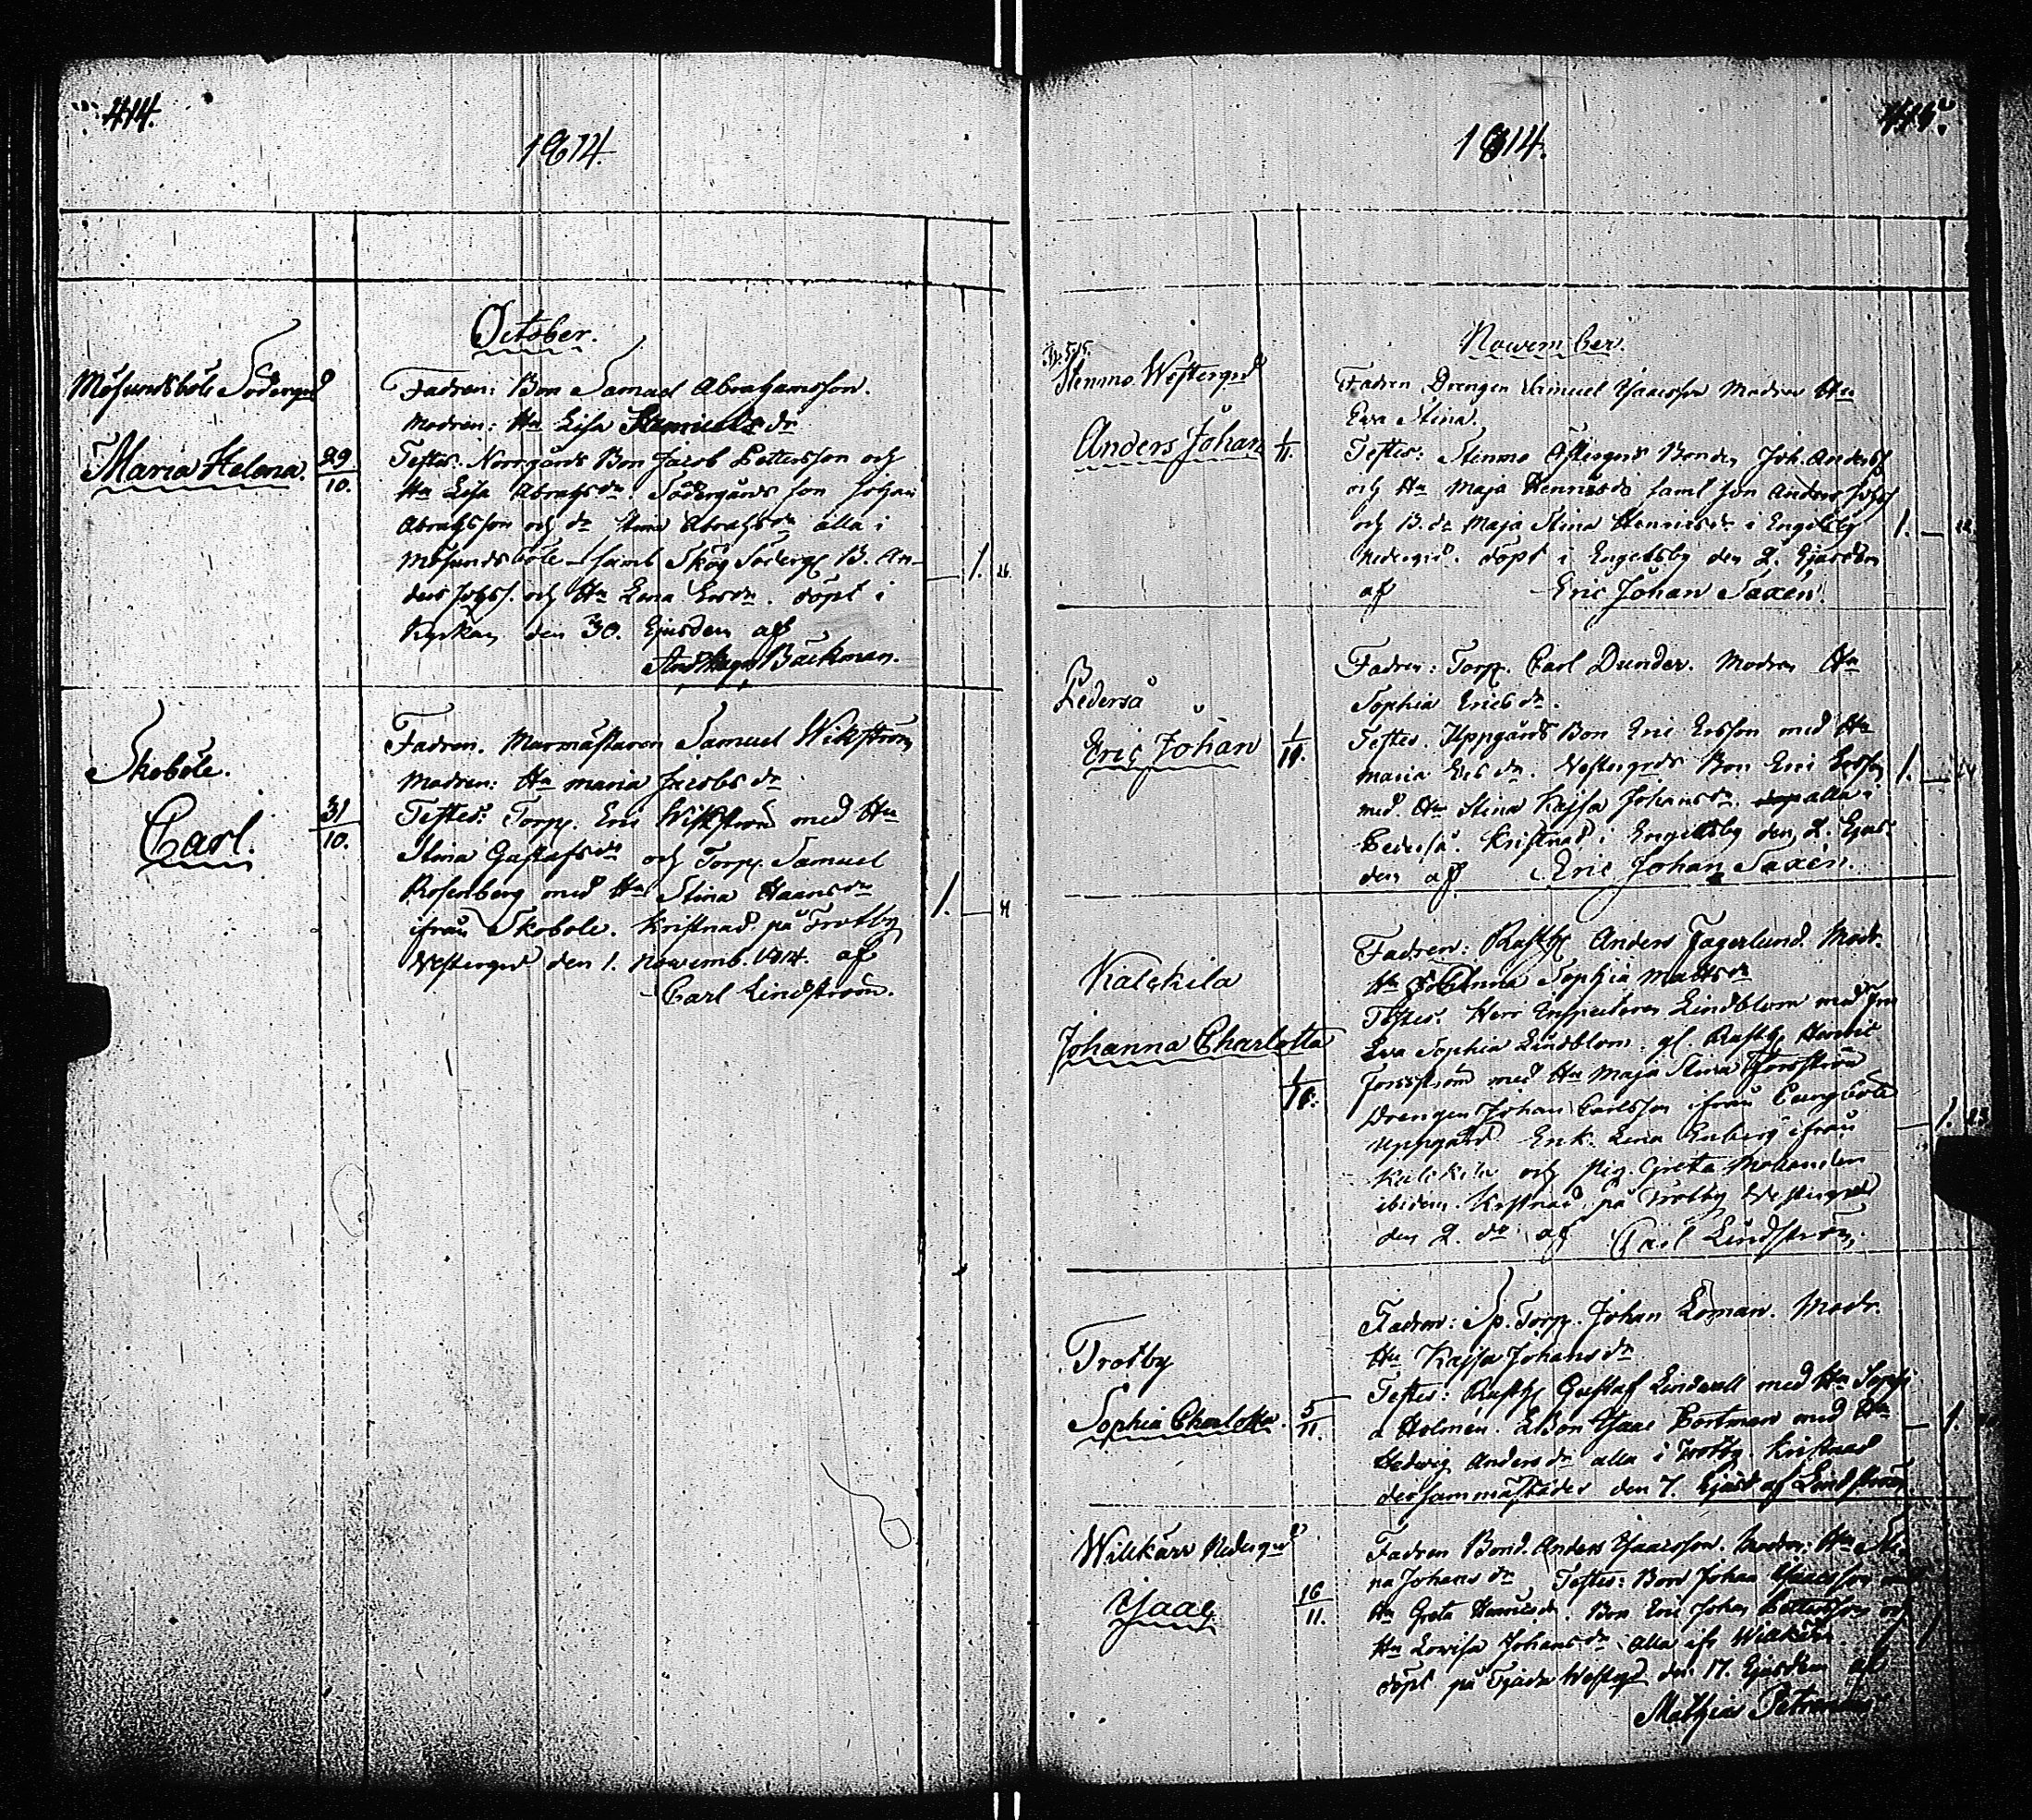 414.
1814.
October.
Mösundsböle Södergrd
Maria Helena.
29
10.
Fadren: Bon Samuel Abrahamsson.
Modren: Hu Lisa Samuelsdr
Testes: Norrgårds Bon Jacob Pettersson och
Hu Lisa Abrahsdr. Södergårds son Johan
Abrahsson och dr Stina Abrahsdr alla i
Mösundsböle samt Skog Söderg B. An-
ders Johss. och Hu Lena Ersdr. döpt i
Kyrkan den 30. Ejusdem af
Backman.
1. 26.
Skoböle.
Carl.
31
10.
Fadren. Murmästaren Samuel Wikström
Modren: Hu Maria Jacobsdr
Testes: Torp. Eric Wikström med Hu
Stina Gustafsdr och Torp. Samuel
Rosenberg med Hu Stina Hansdr
ifrån Skoböle. Kristnad på Trotby
Westergrd den 1. Novemb. 1814. af
Carl Lindström.
1.
415.
1814.
November.
Stenmo Westergrd
Anders Johan
1
11.
Fadren Drengen Samuel Isacsson Modren Hu
Ewa Stina.
Testes: Stenmo Östergrds Bonden Joh. Anderss
och Hu Maja Henricsdr samt son Anders Johss
och B. dr Maja Stina Henricsdr i Engelsby
Nedergrd. döpt i Engelsby den 2. Ejusdem
af Eric Johan Saxén.
1.
Pederså
Eric Johan
1
11.
Fadren: Torp. Carl Dunder. Modren Hu
Sophia Ericsdr.
Testes. Uppgårds Bon Eric Ersson med Hu
Maria Ersdr. Westergrds Bon Eric Ersson
med Hu Stina Kajsa Johansdr. alla i
Pederså. Kristnad i Engelsby den 2. Ejus-
dem af Eric Johan Saxén.
1. 24
Kalckila
Johanna Charlotta
1
11.
Fadren: Rusth Anders Fagerlund. Modr.
Hu Johanna Sophia Mattsdr
Testes: Herr Inspectoren Lindblom med Fru
Eva Sophia Lindblom. gl. Rusth Henric
Forsström med Hu Maja Stina Forsström
Drengen Johan Carlsson ifrån
Uppgård Enk. Lena Enberg ifrån
Kalckila och Pig. Greta
ibidem. Kristnad på Trotby Westergrd
den 2. do af Carl Lindström.
1. 23
Trotby
Sophia Charlotta.
5
11.
Fadren: Sp. Torp. Johan Loman. Modr.
Hu Kajsa Johansdr
Testes: Rusth Gustaf Lindwall med Hu Sophi
a Holmén. LBon Isaac Portman med Hu
Hedwig Andersdr alla i Trotby. Kristnad
dersammastädes den 7. Ejusd af Lindström
1.
Willkärr Nedergrd
Isaac
16
11.
Fadren Bond. Anders Isacsson. Modren: Hu Sti-
na Johansdr Testes: Bon Johan Isacsson med
Hu Greta Henricsdr. Bon Eric Johan Pettersson och
Hu Lovisa Johansdr. Alla ifr Willkärr.
döpt på Fjäder Westergrd den 17. Ejusdem af
Mathias
1